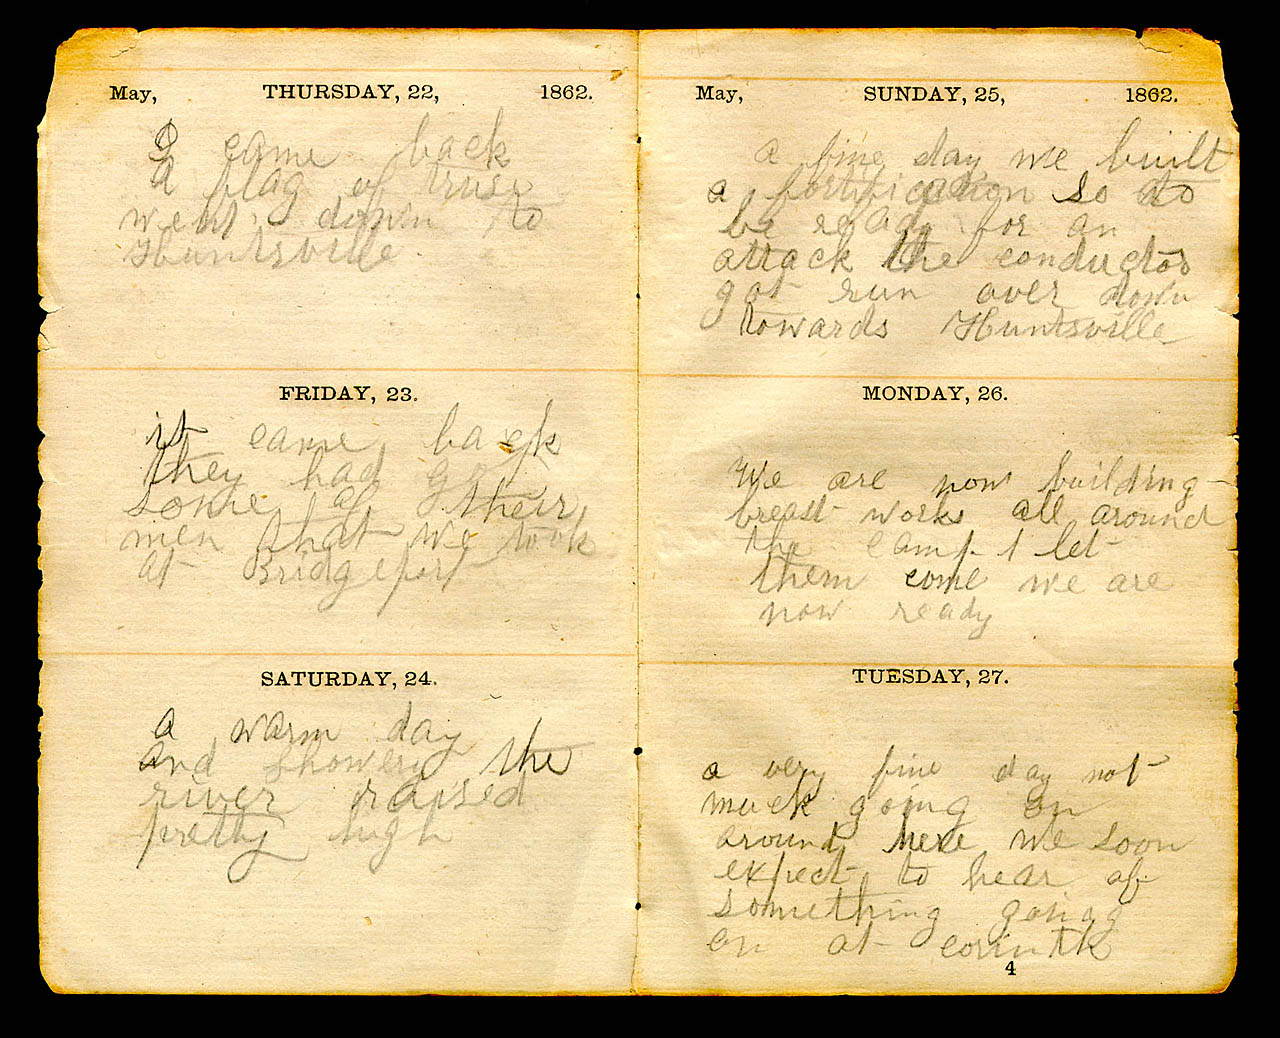 May, THURSDAY, 22, 1862.
I came back
a flag of truse
went down to
Huntsville
FRIDAY, 23.
it came back
they had got
some of their
men that we took
at Bridgeport
SATURDAY, 24.
a warm day
and showery the
river raised
pretty high
May, SUNDAY, 25, 1862.
a fine day we built
a fortification so as to
be ready for an
attack the conductor
got run over down
towards Huntsville
MONDAY, 26.
We are now building
breast works all around
the camp let
them come we are
now ready
TUESDAY, 27.
a very fine day not
muck going on
around here we soon
expect to hear of
something going
on at corinth
4